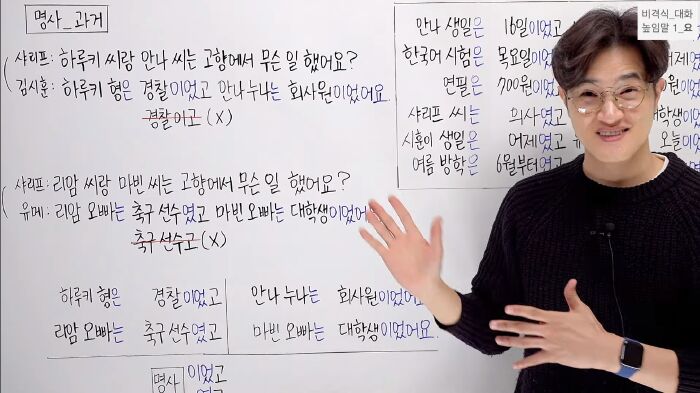 명사_과거
샤리프: 하루키 씨랑 안나 씨는 고향에서 무슨 일 했어요?
김시훈: 하루키 형은 경찰이었고 안나 누나는 회사원이었어요.
경찰이고 (X)
샤리프: 리암 씨랑 마빈 씨는 고향에서 무슨 일 했어요?
유메: 리암 오빠는 축구 선수였고 마빈 오빠는 대학생이었어
축구 선수고 (X)
하루키 형은 경찰이었고 안나 누나는 회사원이었어
리암 오빠는 축구 선수였고 마빈 오빠는 대학생이었어요.
명사 이었고
였고
안나 생일은 16일이었고
한국어 시험은 목요일이었 어제였
연필은 700원이었고 원이
샤리프 씨는 의사였고 대학생이었
시훈이 생일은 어제였고 오늘이
여름 방학은 6월부터였고
비격식_대화
높임말 1_요